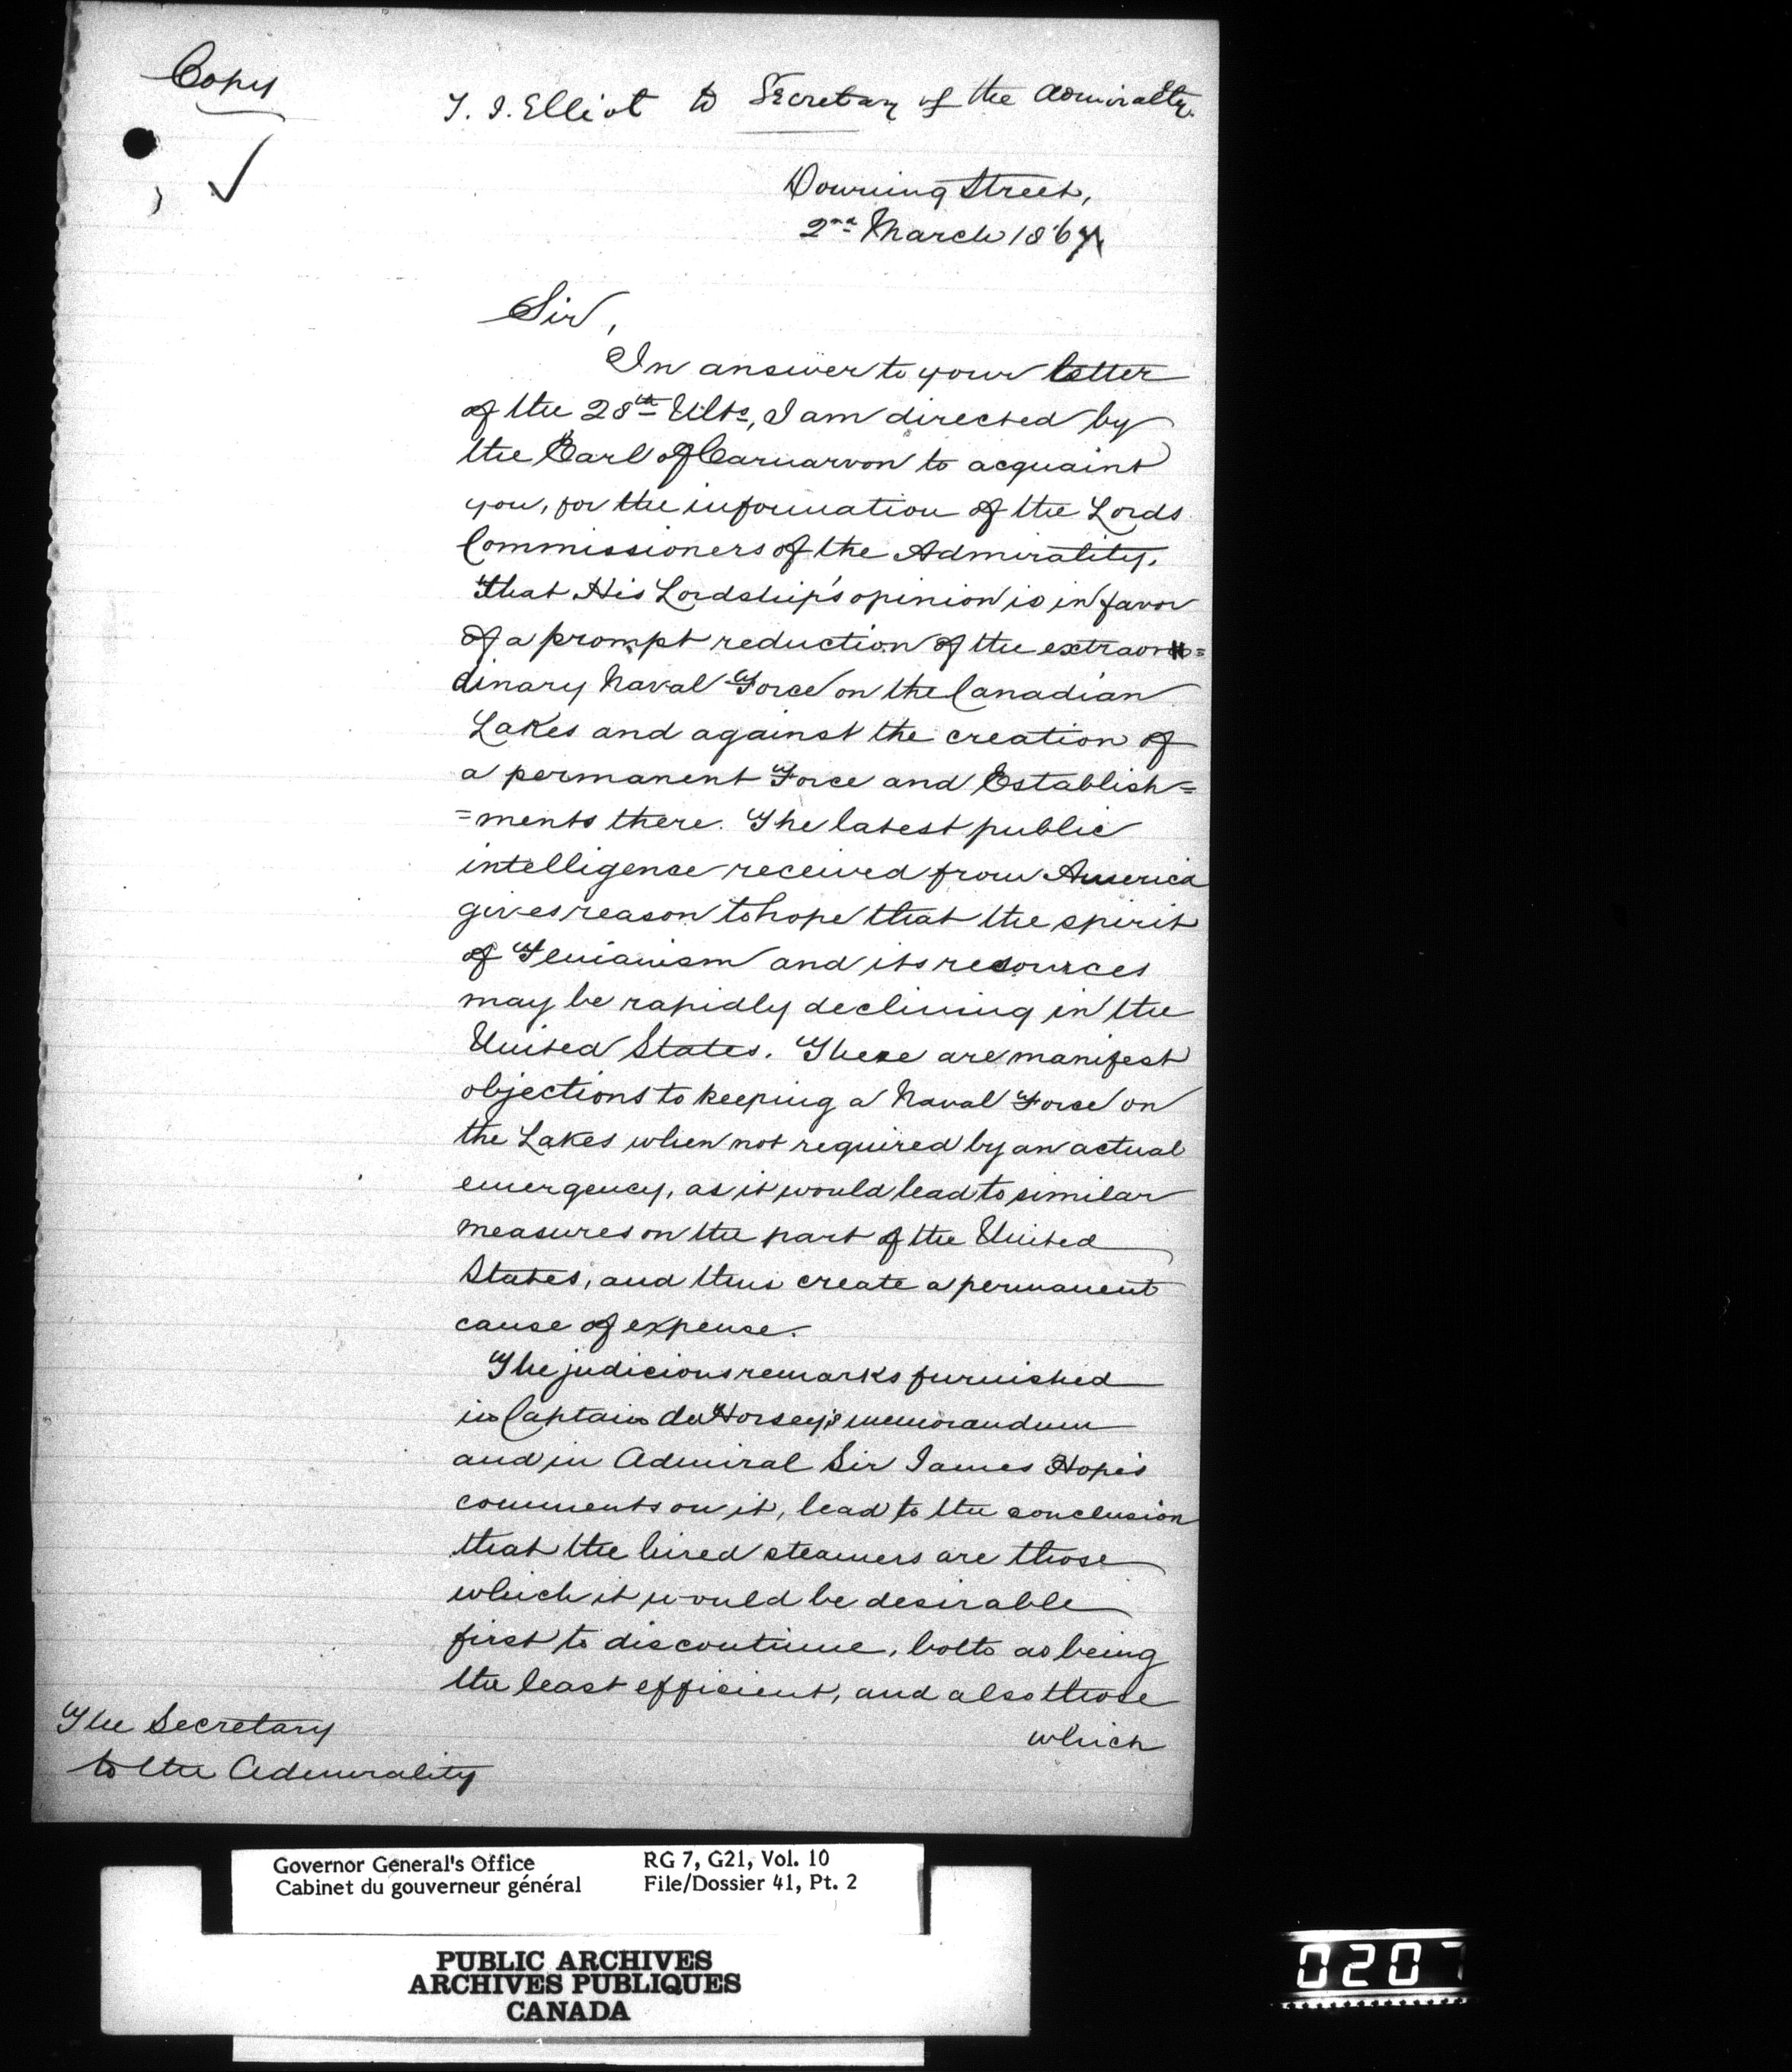 Copy
T. I. Elliot to Secretary of the Admiralty.
Downing Street,
2nd March 1867
Sir,
In answer to your letter
of the 28th Ulto, I am directed by
the Earl of Carnarvon to acquaint
you, for the information of the Lords
Commissioners of the Admirality,
that His Lordship's opinion is in favor
of a prompt reduction of the extraor=
dinary Naval Force on the Canadian
Lakes and against the creation of
a permanent Force and Establish=
=ments there. The latest public
intelligence received from America
gives reason to hope that the spirit
of Fenianism and its resources
may be rapidly declining in the
United States. There are manifest
objections to keeping a Naval Force on
the Lakes when not required by an actual
emergency, as it would lead to similar
measures on the part of the United
States, and thus create a permanent
cause of expense.
The judicious remarks furnished
in Captain de Horsey's memorandum
and in Admiral Sir James Hope's
comments on it, lead to the conclusion
that the hired steamers are those
which it would be desirable
first to discontinue, both as being
the least efficient, and also those
which
The Secretary
to the Admirality
Governor General's Office RG 7, G21, Vol. 10
Cabinet du gouverneur général File/Dossier 41, Pt. 2
PUBLIC ARCHIVES
ARCHIVES PUBLIQUES
CANADA
0207